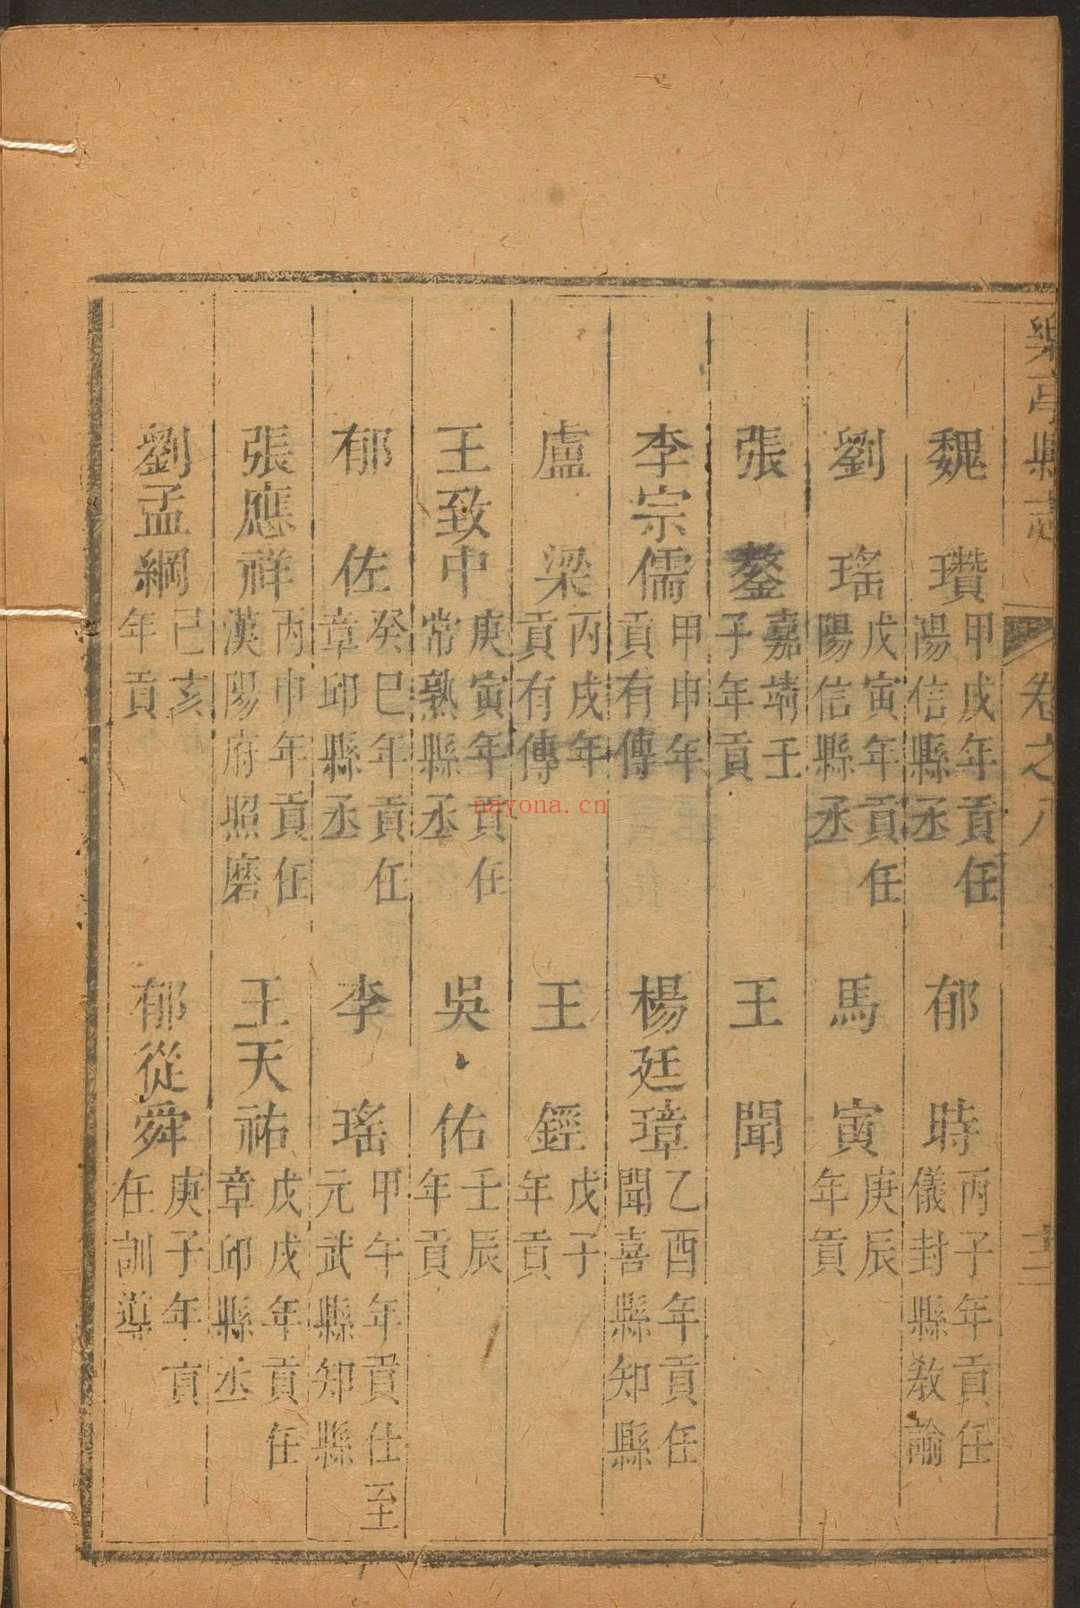 樂亭縣志
卷之八
十三
魏瓚 甲戌年貢任陽信縣丞
郁時 丙子年貢任儀封縣教諭
劉瑤 戊寅年貢任陽信縣丞
馬寅 庚辰年貢
張鏊 嘉靖壬子年貢
王聞
李宗儒 甲申年貢有傳
楊廷璋 乙酉年貢任聞喜縣知縣
盧梁 丙戌年貢有傳
王鏗 戊子年貢
王致中 庚寅年貢任常熟縣丞
吳佑 壬辰年貢
郁佐 癸巳年貢任章邱縣丞
李瑤 甲午年貢仕至元武縣知縣
張應祥 丙申年貢任漢陽府照磨
王天祐 戊戌年貢任章邱縣丞
劉孟綱 己亥年貢
郁從舜 庚子年貢任訓導
nayona.cn